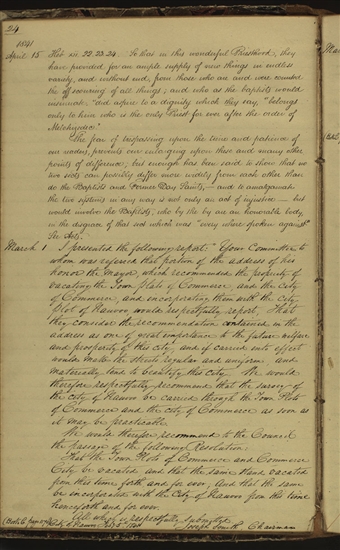 24
1841
April 15 Heb xii 22.23.24. So that in this wonderful Priesthood, they
have provided for an ample supply of new things in endless
variety, and without end, from those who are and were counted
the off scouring of all things; and who as the baptists would
insinuate, "did aspire to a dignity which they say, "belongs
only to him who is the only Priest for ever after the order of
Melchizedec"
The fear of trespassing upon the time and patience of
our readers, prevents our enlarging upon these and many other
points of difference; but enough has been said to show that no
two sects can possibly differ more widely from each other than
do the Baptists and Latter Day Saints, — and to amalgamate
the two systems in any way is not only an act of injustice — but
would involve the Baptists, who by the by are an honorable body,
in the disgrace of that sect which was "every where spoken against"
See Acts.
March 1 I presented the following report. "Your Committee to
whom was referred that portion of the address of his
honor the mayor, which recommended the propriety of
vacating the Town plats of Commerce, and the City
of Commerce, and incorporating them with the City
Plot of Nauvoo would respectfully report, That
they consider the recommendation contained in the
address as one of great importance to the future welfare
and prosperity of this City and if carried into effect
would make the streets regular and uniform and
materially tend to beautify this City. We would
therefore respectfully recommend that the survey of
the City of Nauvoo be carried through the Town Plots
of Commerce and the City of Commerce as soon as
it may be practicable
We would therefore recommend to the Council
the passage of the following Resolution.
That the Town Plots of Commerce and Commerce
City be vacated and that the same stand vacated
from this time forth and for ever, and that the same
be incorporated with the City of Nauvoo from this time
henceforth and for ever.
All which is respectfully submitted
City of Nauvoo Joseph Smith Chairman